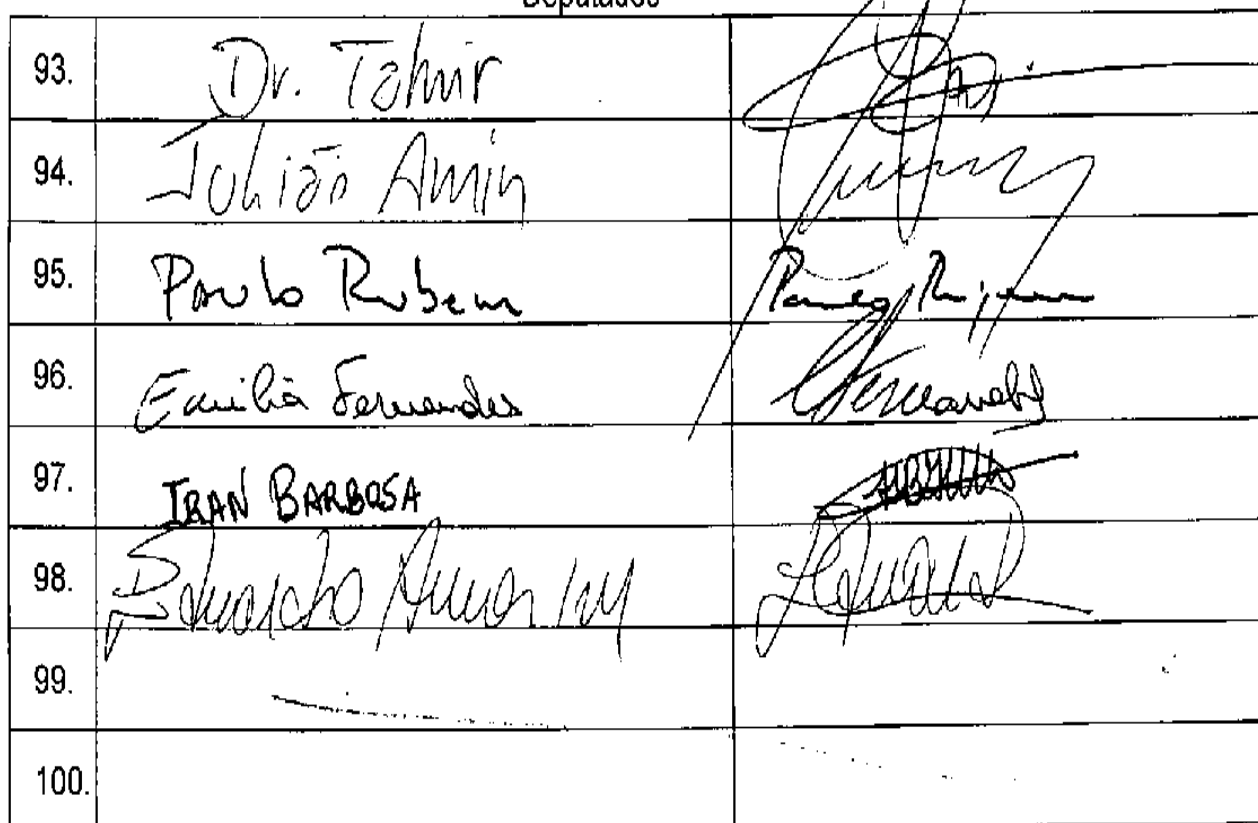 Deputados
93. Dr. Talmir
94. Julião Amin
95. Paulo Rubem
96. Emilia Fernandes
97. IRAN BARBOSA
98. Eduardo Amorim
99.
100.